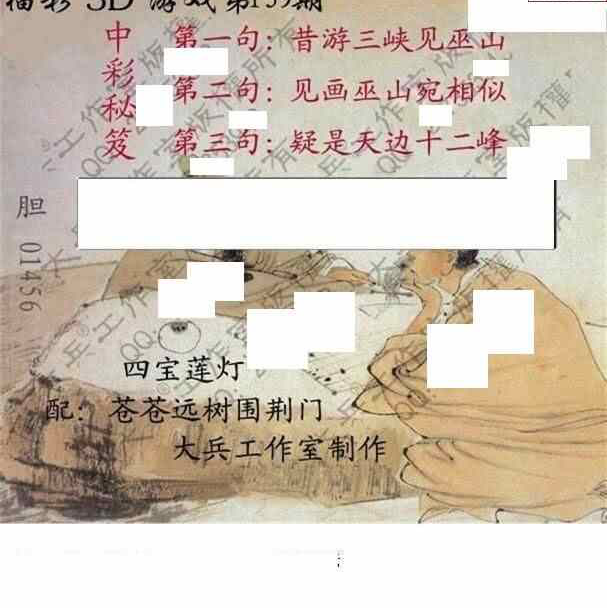 福彩 3D 游戏第159期
中彩秘笈
第一句：昔游三峡见巫山
第二句：见画巫山宛相似
第三句：疑是天边十二峰
胆 01456
四宝莲灯
配：苍苍远树围荆门
大兵工作室制作